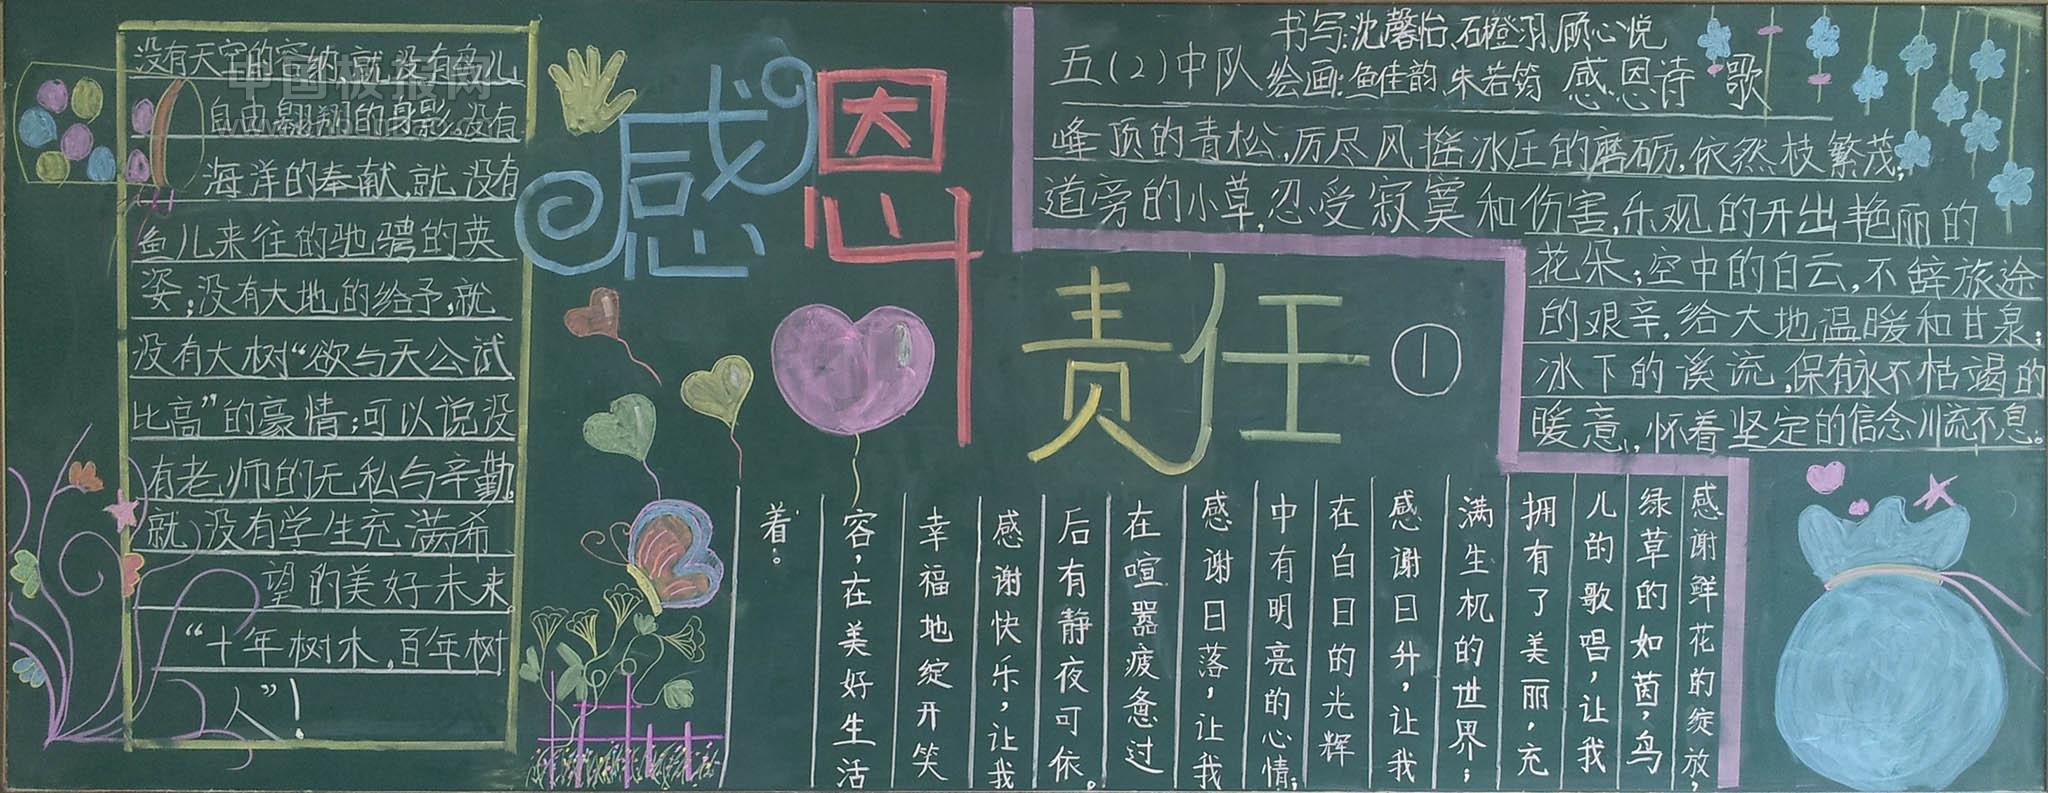 没有天空的容纳,就没有鸟儿
自由翱翔的身影。没有
海洋的奉献,就没有
鱼儿来往的驰骋的英
姿;没有大地的给予,就
没有大树“欲与天公试
比高”的豪情;可以说没
有老师的无私与辛勤,
就没有学生充满希
望的美好未来。
“十年树木,百年树
人”!
中国板报网
感恩
责任①
书写:沈馨怡、石橙羽、顾心悦
五(2)中队 绘画:鱼佳韵、朱若筠 感恩诗歌
峰顶的青松,厉尽风摇冰压的磨砺,依然枝繁茂;
道旁的小草,忍受寂寞和伤害,乐观的开出艳丽的
花朵;空中的白云,不辞旅途
的艰辛,给大地温暖和甘泉;
冰下的溪流,保有永不枯竭的
暖意,怀着坚定的信念川流不息。
感谢鲜花的绽放,
绿草的如茵,鸟
儿的歌唱,让我
拥有了美丽,充
满生机的世界;
感谢日升,让我
在白日的光辉
中有明亮的心情;
感谢日落,让我
在喧嚣疲惫过
后有静夜可依。
感谢快乐,让我
幸福地绽开笑
容,在美好生活
着。